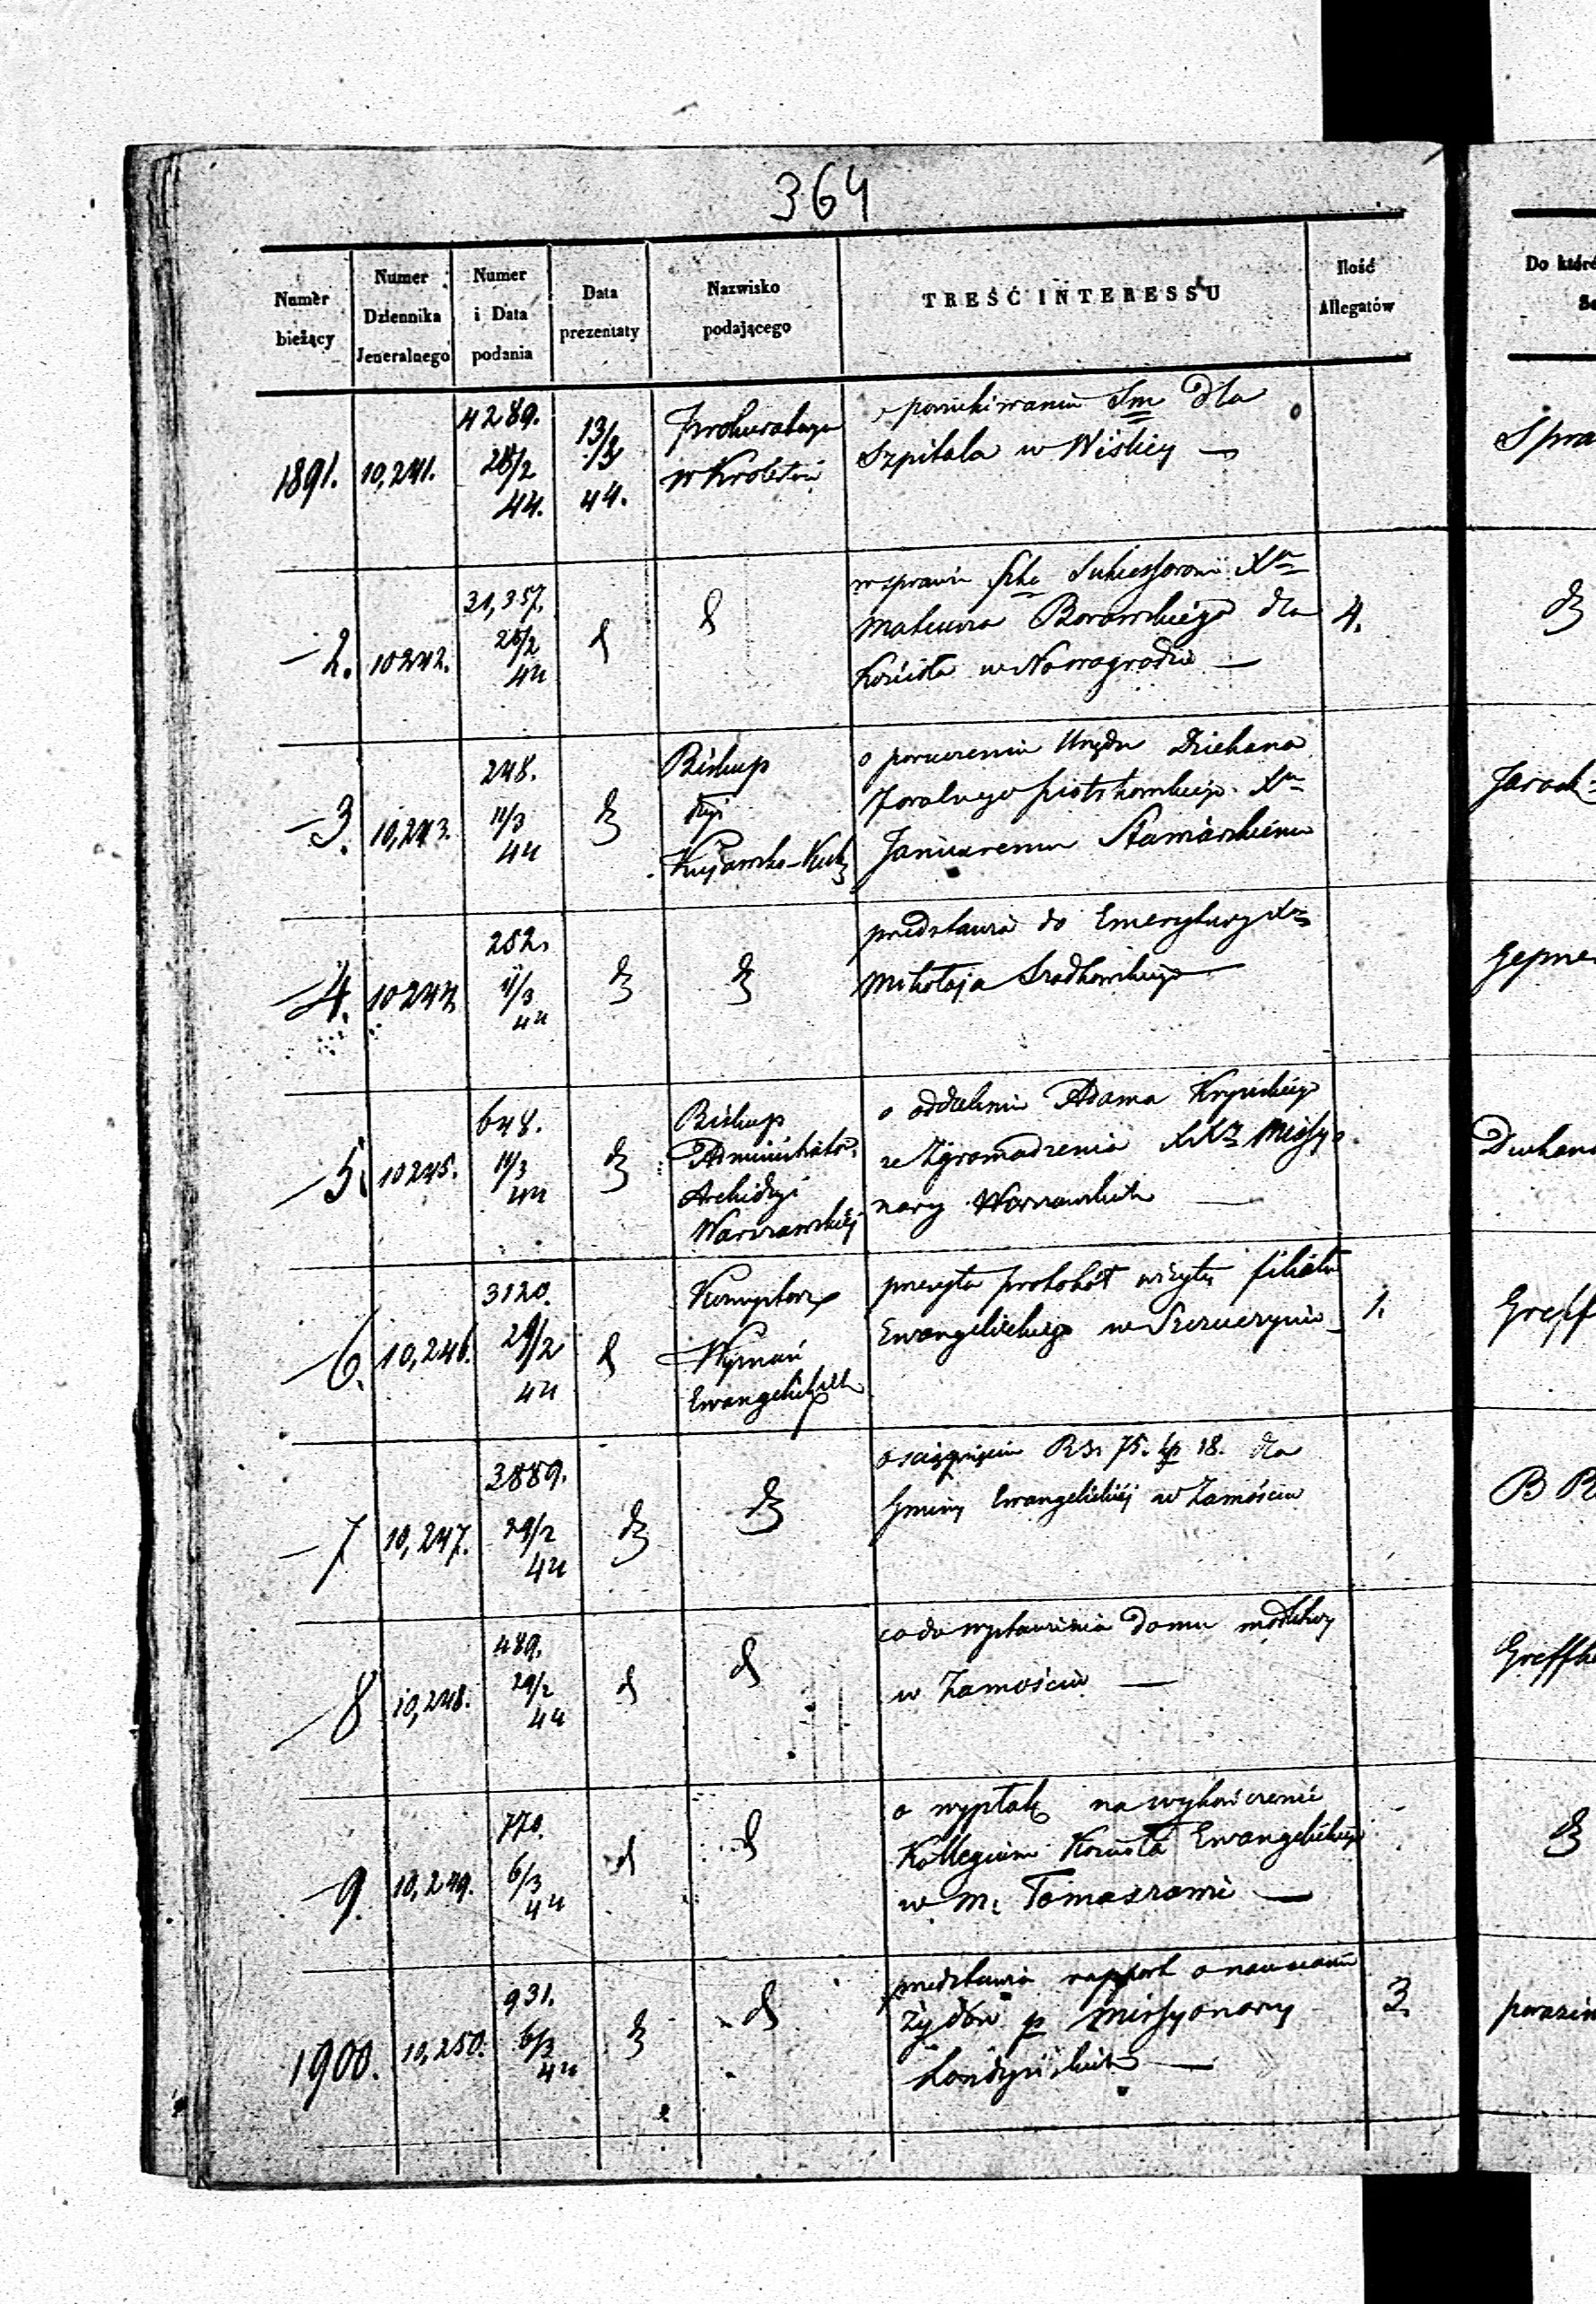 364
Numer bieżący
Numer Dziennika Jeneralnego
Numer i Data podania
Data prezentaty
Nazwisko podającego
TREŚĆ INTERESSU
Ilość Allegatów
Do któré
1891. 10,241. 4289. 28/2 44. 13/3 44.
w Królestwie
o poszukiwaniu Sm dla
Szpitala w Wiślicy —
Spra
— 2. 10242. 31,357. 28/2 44
w sprawie Sukcessorom Xa
Mateusza Borowskiego dla
Kościoła w Nowogrodzie —
4.
— 3. 10,243. 248. 11/3 44
Biskup
Dyi
Kujawsko-Kal
o poruczeniu Urzędu Dziekana
Foralnego Piotrkowskiego Xu
Januaremu
Jarock
— 4. 10244 252. 11/3 44
przedstawia do Emerytury Xa
Mikołaja Sradkowskiego
— 5. 10245. 648. 11/3 44
Biskup
Administrator
Archidyi
Warszawskiéj
o oddaleniu Adama
ze Zgromadzenia XXży Missyo
narzy Warszawskich —
— 6. 10,246. 3120. 29/2 44
Konsystorz
Wyznań
Ewangelickich
przesyła protokół wizyty filiału
Ewangelickiego w Szczuczynie —
1.
Greff
— 7 10,247. 3889. 29/2 44
o ściągnięcie RSr 75. kp 18. dla
Gminy Ewangelickiéj w Zamościu
B B
— 8 10,248. 489. 29/2 44
co do wystawienia Domu modlitwy
w Zamościu —
Greffk
— 9. 10,249. 770. 6/3 44
o wypłatę na wykończenie
Kollegium Kościoła Ewangelickiego
w M. Tomaszowie —
1900. 10,250. 931. 6/3 44
przedstawia rapport o nauczaniu
Żydów p Missyonarzy
Londyńskich —
3.